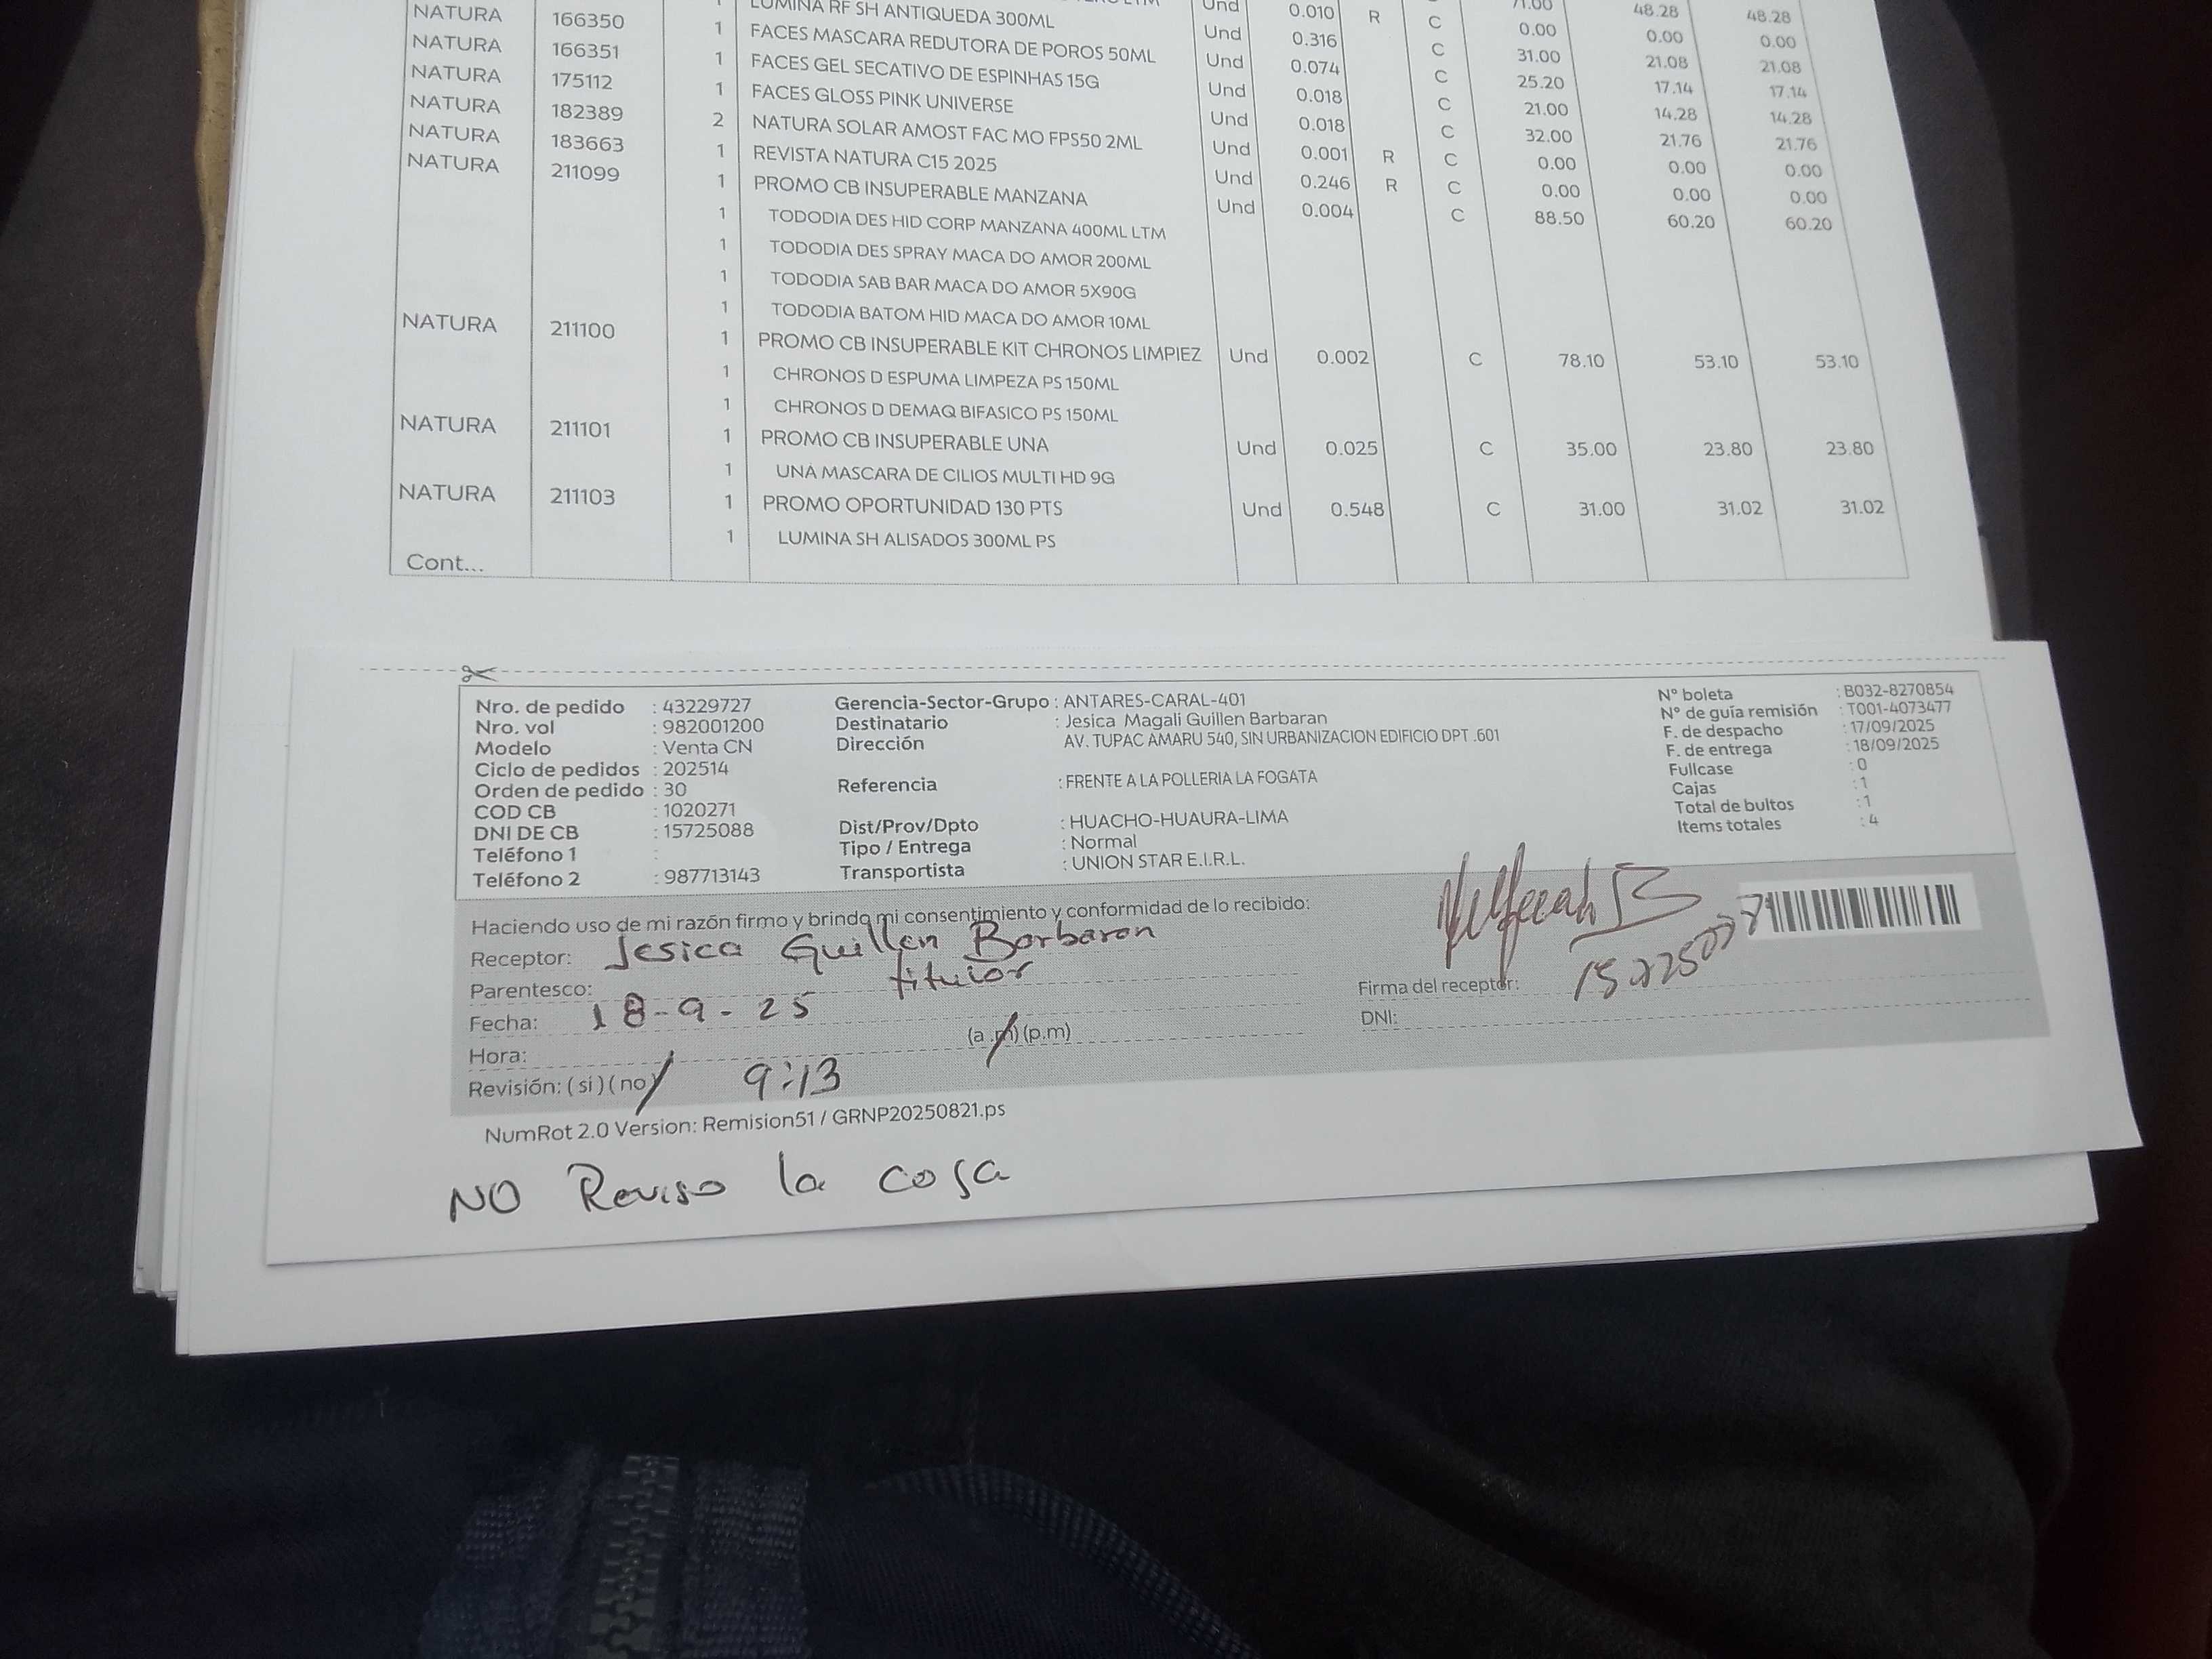 LUMINA RF SH ANTIQUEDA 300ML Und 0.010 R C 71.00 48.28 48.28
NATURA 166350 1 FACES MASCARA REDUTORA DE POROS 50ML Und 0.316 C 0.00 0.00 0.00
NATURA 166351 1 FACES GEL SECATIVO DE ESPINHAS 15G Und 0.074 C 31.00 21.08 21.08
NATURA 175112 1 FACES GLOSS PINK UNIVERSE Und 0.018 C 25.20 17.14 17.14
NATURA 182389 2 NATURA SOLAR AMOST FAC MO FPS50 2ML Und 0.018 C 21.00 14.28 14.28
NATURA 183663 1 REVISTA NATURA C15 2025 Und 0.001 R C 32.00 21.76 21.76
NATURA 211099 1 PROMO CB INSUPERABLE MANZANA Und 0.246 R C 0.00 0.00 0.00
1 TODODIA DES HID CORP MANZANA 400ML LTM 0.004 C 0.00 0.00 0.00
1 TODODIA DES SPRAY MACA DO AMOR 200ML 88.50 60.20 60.20
1 TODODIA SAB BAR MACA DO AMOR 5X90G
1 TODODIA BATOM HID MACA DO AMOR 10ML
NATURA 211100 1 PROMO CB INSUPERABLE KIT CHRONOS LIMPIEZ Und 0.002 C 78.10 53.10 53.10
1 CHRONOS D ESPUMA LIMPEZA PS 150ML
1 CHRONOS D DEMAQ BIFASICO PS 150ML
NATURA 211101 1 PROMO CB INSUPERABLE UNA Und 0.025 C 35.00 23.80 23.80
1 UNA MASCARA DE CILIOS MULTI HD 9G
NATURA 211103 1 PROMO OPORTUNIDAD 130 PTS Und 0.548 C 31.00 31.02 31.02
1 LUMINA SH ALISADOS 300ML PS
Cont...
Nro. de pedido : 43229727 Gerencia-Sector-Grupo : ANTARES-CARAL-401 N° boleta : B032-8270854
Nro. vol : 982001200 Destinatario : Jesica Magali Guillen Barbaran N° de guía remisión : T001-4073477
Modelo : Venta CN Dirección AV. TUPAC AMARU 540, SIN URBANIZACION EDIFICIO DPT .601 F. de despacho : 17/09/2025
Ciclo de pedidos : 202514 F. de entrega : 18/09/2025
Orden de pedido : 30 Referencia : FRENTE A LA POLLERIA LA FOGATA Fullcase : 0
COD CB : 1020271 Cajas : 1
DNI DE CB : 15725088 Dist/Prov/Dpto : HUACHO-HUAURA-LIMA Total de bultos : 1
Teléfono 1 : Tipo / Entrega : Normal Items totales : 4
Teléfono 2 : 987713143 Transportista : UNION STAR E.I.R.L.
Haciendo uso de mi razón firmo y brindo mi consentimiento y conformidad de lo recibido:
Receptor: Jesica Guillen Barbaron
Parentesco: titulor Firma del receptor:
Fecha: 18-9-25 DNI:
Hora: (a.m) (p.m)
Revisión: (si) (no) 9:13
NumRot 2.0 Version: Remision51 / GRNP20250821.ps
NO Reviso la cosa